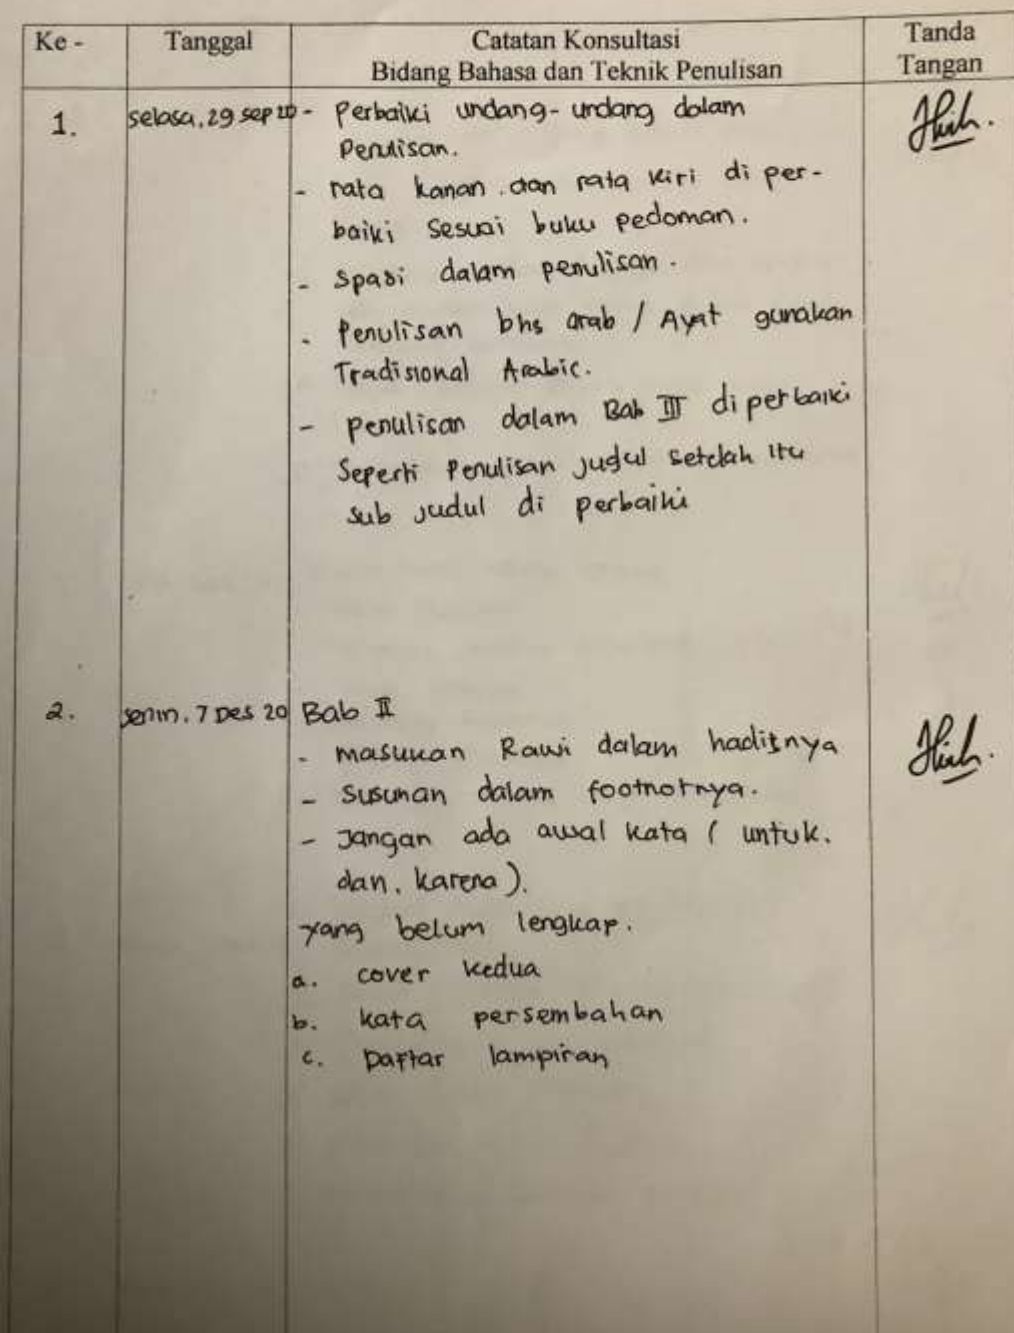 Ke - Tanggal Catatan Konsultasi Tanda
Bidang Bahasa dan Teknik Penulisan Tangan
1. selasa, 29 sep 20 - Perbaiki undang-undang dalam
Penulisan.
- rata kanan dan rata kiri di per-
baiki Sesuai buku pedoman.
- Spasi dalam penulisan.
- Penulisan bhs arab / Ayat gunakan
Tradisional Arabic.
- penulisan dalam Bab III di perbaiki
Seperti Penulisan judul setelah itu
sub judul di perbaiki
2. senin, 7 Des 20 Bab II
- masukan Rawi dalam haditsnya
- Susunan dalam footnotnya.
- Jangan ada awal kata ( untuk,
dan, karena ).
yang belum lengkap.
a. cover kedua
b. kata persembahan
c. Daftar lampiran